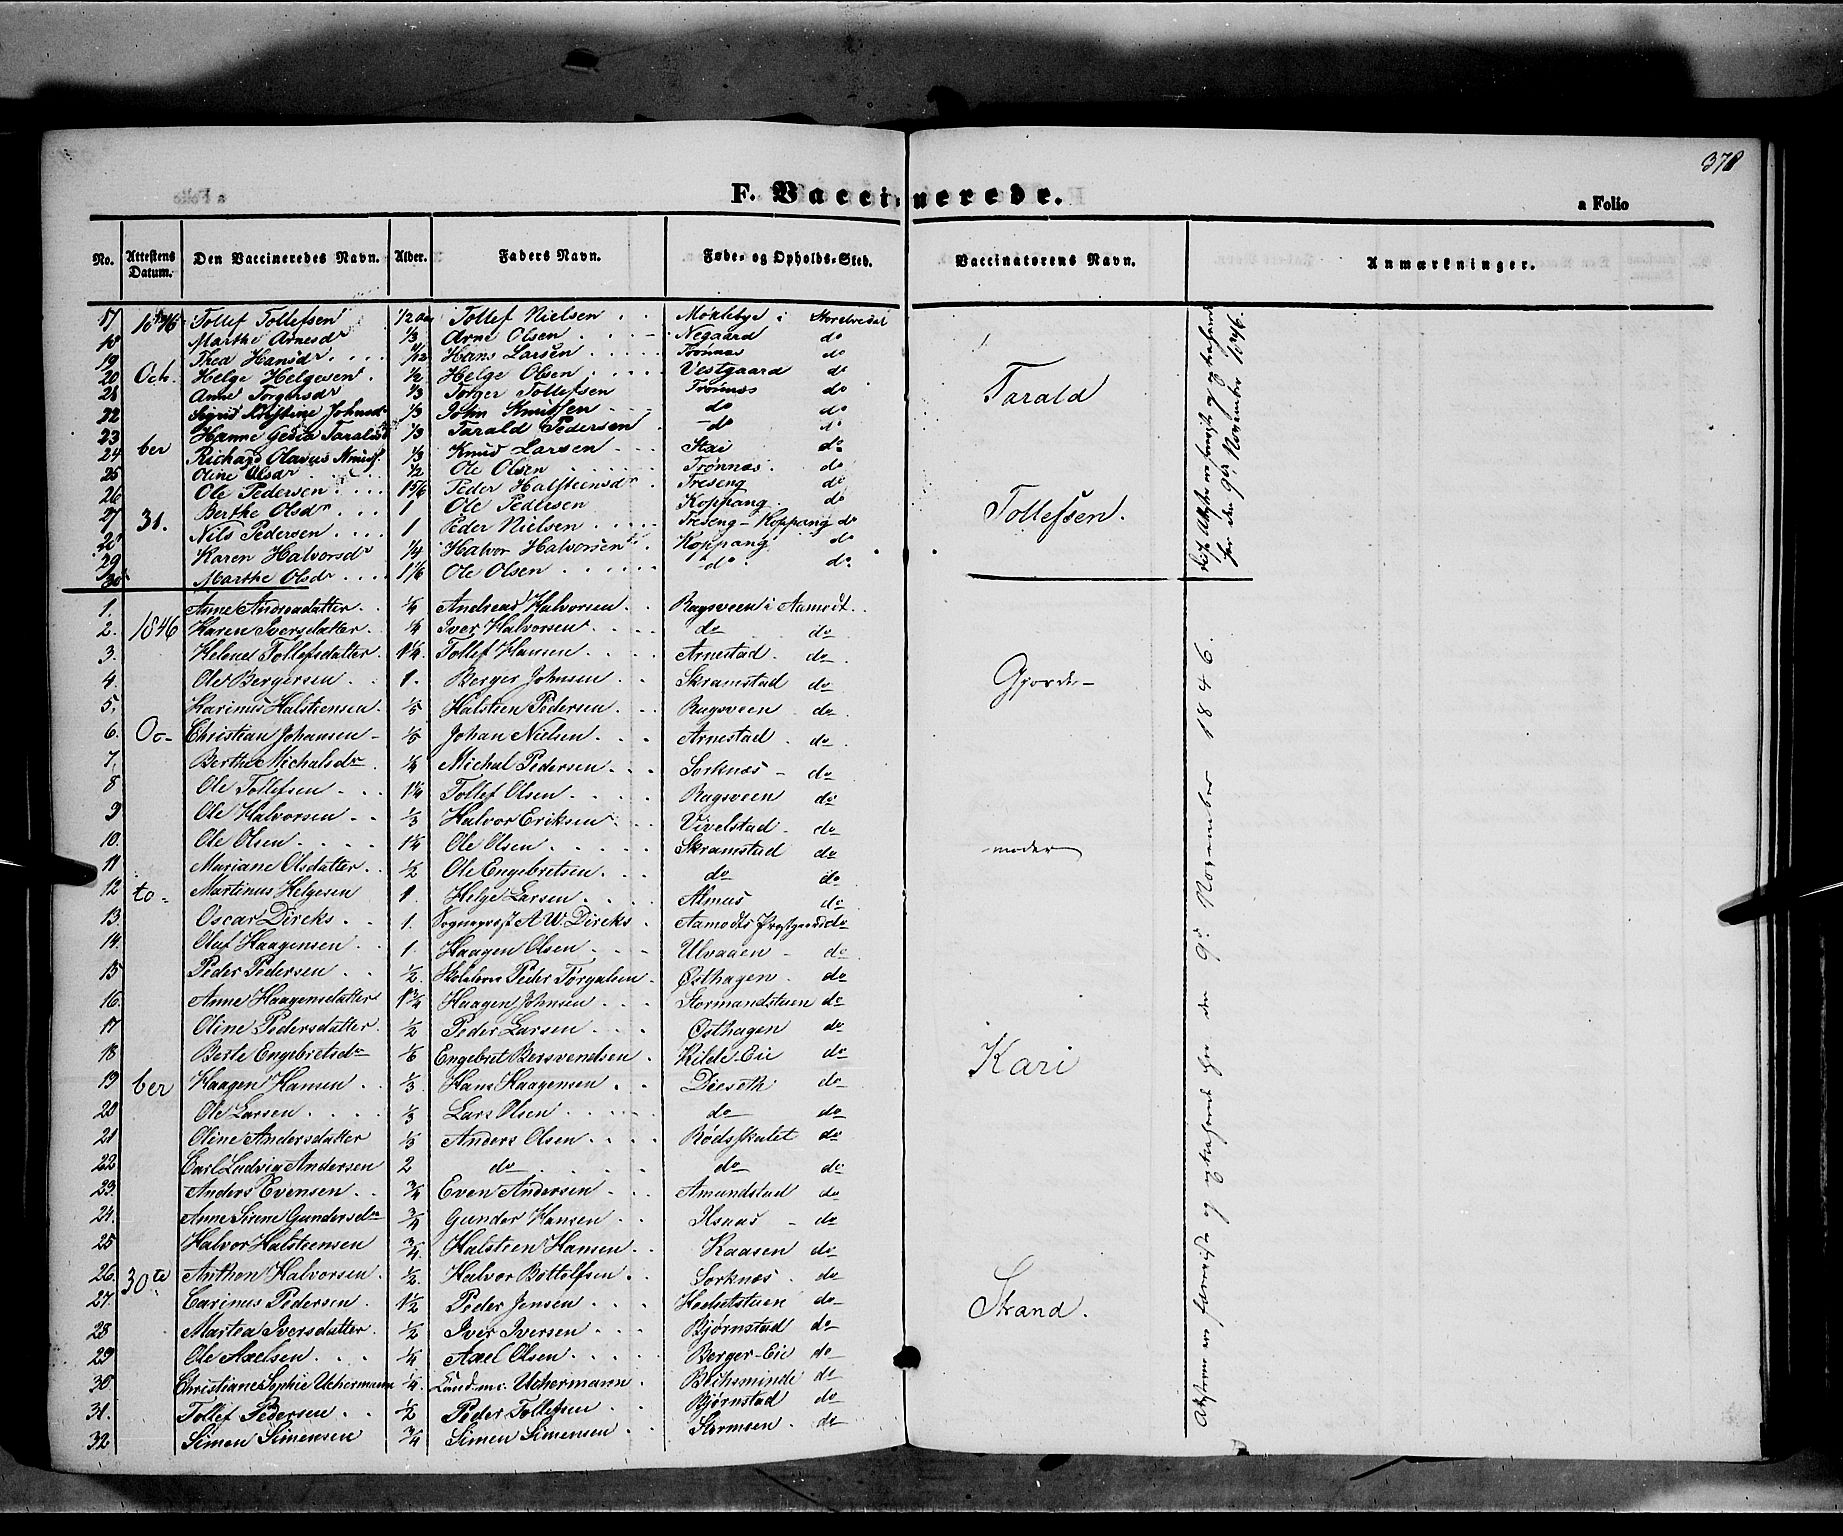 378
F. Vaccinerede.
a Folio
No. Attestens Datum. Den Vaccineredes Navn. Alder. Faders Navn. Føde- og Opholds-Sted. Vaccinatorens Navn. Anmærkninger.
17 1846 Tollef Tollefsen 1/2 Aar Tollef Nielsen Moklebye i Storelvedal
18 Marthe Arnesdr 1/3 Arne Olsen Negaard do
19 Thea Hansdr Hans Larsen Trønnæs do
20 Octo- Helge Helgesen 1/2 Helge Olsen Vestgaard do
21 Anne Torgersdr 1/3 Torger Tollefsen Trønnæs do
22 Sigrid Kristine Johnsdr 1/3 John Knutsen do do
23 Hanne Gedia Taraldsd 1/3 Tarald Pedersen do do
24 ber Richard Olavus Knuds. 1/3 Knud Larsen Stai do
25 Oline Olsdr 1/2 Ole Olsen Trønnæs. do
26 Ole Pedersen 1 5/6 Peder Halsteensdr Treseng do
27 Berthe Olsdr 1 Ole Pedersen Koppang do
28 31. Nils Pedersen 1 Peder Nielsen Treseng-Koppang do
29 Karen Halvorsdr 1/4 Halvor Halvorsen Koppang do
30 Marthe Olsdr 1 1/6 Ole Olsen do do
Tarald
Tollefsen.
November 1846.
1. Anne Andreadatter 1/4 Andreas Halvorsen Ragsveen i Aamodt.
2. 1846 Karen Iversdatter. 1/4 Iver Halvorsen do do
3. Helene Tollefsdatter. 1 1/4 Tollef Hansen Arnestad. do
4. Ole Bergersen 1. Berger Johnsen Skramstad do
5. Karinus Halsteensen. 1/5 Halsteen Pedersen Ragsveen do
6. Oc- Christian Johansen 1/5 Johan Nielsen Arnestad. do
7. Berthe Michalsdr 1/4 Michal Pedersen Sorknæs do
8 Ole Tollefsen 1 1/4 Tollef Olsen Ragsveen do
9 Ole Halvorsen 1/3 Halvor Eriksen Vivelstad do
10. Ole Olsen 1 1/4 Ole Olsen Skramstad do
11 Mariane Olsdatter 1/2 Ole Engebretsen do do
12 to- Martinus Helgesen 1 Helge Larsen Almus do
13 Oscar Dircks 1. Sognepræst A.W. Dircks Aamodts Præstgaard do
14. Oluf Haagensen 1 Haagen Olsen Ulvaaen do
15 Peder Pedersen 1/2 Peder Tørgalsen Østhagen do
16. Anne Haagensdatter 1 3/4 Haagen Johnsen Stormandstuen do
17 Oline Pedersdatter. 1/2 Peder Larsen Østhagen do
18 Berte Engebretsdr 1/6 Engebret Bersvendsen Kilde Eie do
19 ber Haagen Hansen 1/3 Hans Haagensen Dieseth do
20 Ole Larsen 1/3 Lars Olsen do do
21 Oline Andersdatter 1/3 Anders Olsen Rødsskalet do
22 Carl Ludvig Andersen 2 do do do
23. Anders Evensen 3/4 Even Andersen Amundstad do
24. Anne Sirene Gundersdr 3/4 Gunder Hansen Ilsaas do
25 Halvor Halsteensen 3/4 Halsteen Hansen Kaasen do
26. 30te Anthon Halvorsen 1/2 Halvor Bottolfsen Sorknæs do
27. Carinus Pedersen 1 1/2 Peder Jensen do
28 Martea Iversdatter 1/2 Iver Iversen Bjørnstad do
29 Ole Axelsen 1/4 Axel Olsen Berger-Eie do
30 Christiane Sophie Uchermann 1/4 Uchermann Bechsminde do
31. Tollef Pedersen 1/2 Peder Tollefsen Bjørnstad do
32 Simen Simensen 3/4 Simen Simensen Stormoen do
Gjorde-
moder
Kari
Strand.
den 9de November 1846.